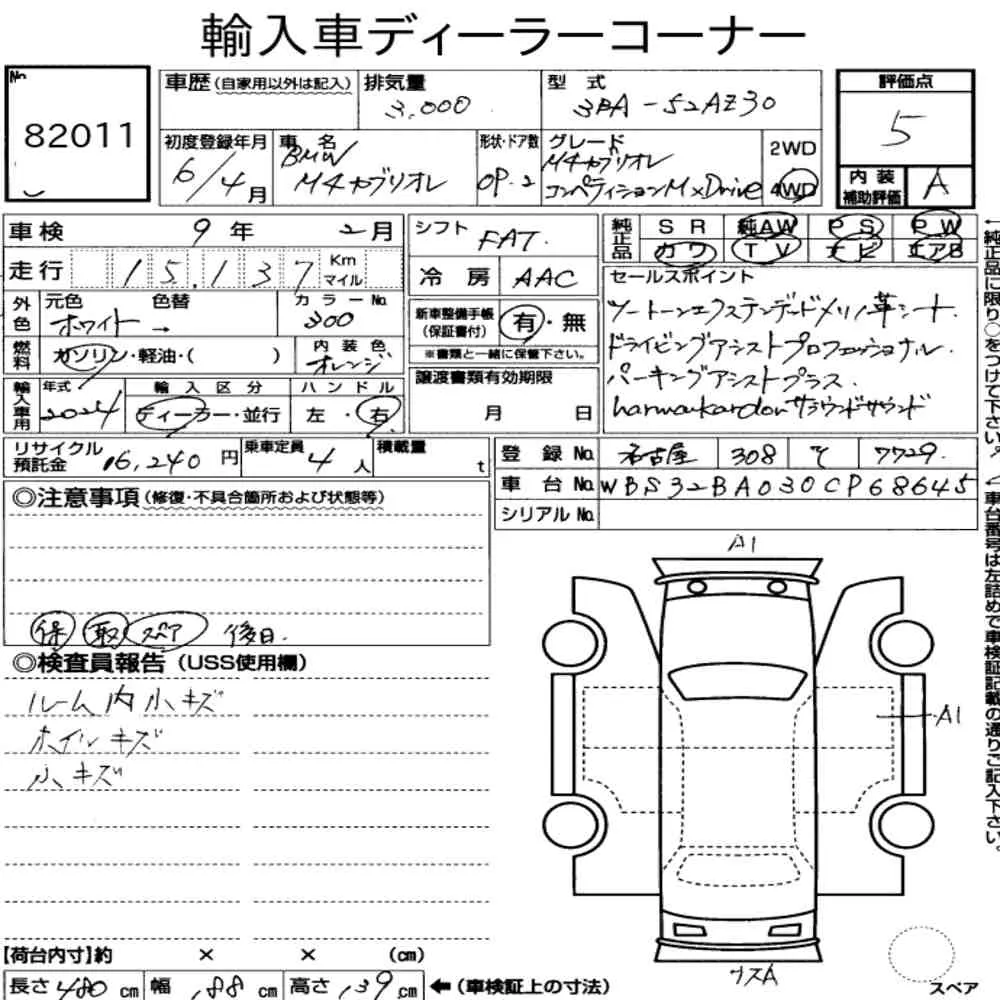 輸入車ディーラーコーナー
No.
82011
車歴(自家用以外は記入)
排気量
3,000
型式
3BA-52AZ30
評価点
5
初度登録年月
6/4月
車名
BMW
M4カブリオレ
形状・ドア数
OP.2
グレード
M4カブリオレ
コンペティションM xDrive
2WD
4WD
内装
補助評価
A
車検 9年 2月
シフト
FAT.
純正品
SR 純AW PS PW
カワ TV ナビ エアB
走行 15,137 Km
マイル
冷房 AAC
セールスポイント
ツートーンエクステンデッドメリノ革シート.
ドライビングアシストプロフェッショナル.
パーキングアシストプラス.
harman/kardonサラウンドサウンド
外色
元色 色替
ホワイト→
カラーNo.
300
新車整備手帳
(保証書付)
有・無
※書類と一緒に保管下さい。
燃料
ガソリン・軽油・( )
内装色
オレンジ
譲渡書類有効期限
月 日
輸入車用
年式
2024
輸入区分
ディーラー・並行
ハンドル
左・右
リサイクル
預託金 16,240円
乗車定員
4人
積載量
t
登録No. 名古屋 308 そ 7729
車台No. WBS32BA030CP68645
シリアルNo.
◎注意事項(修復・不具合箇所および状態等)
保 取 スペア 後日.
◎検査員報告(USS使用欄)
ルーム内小キズ
ホイルキズ
小キズ
A1
A1
ソスA
スペア
【荷台内寸】約 × × (cm)
長さ480cm 幅188cm 高さ139cm ←(車検証上の寸法)
←純正品に限り○をつけて下さい。
車台番号は左詰めで車検証記載の通りご記入下さい。